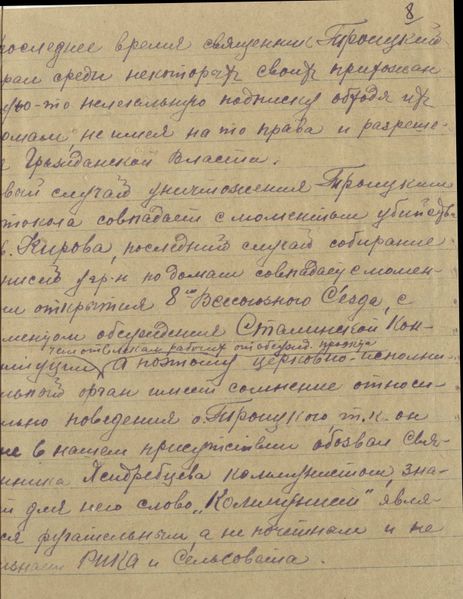 8
последнее время священник Троицкий
рал среди некоторых своих прихожан
ую-то нелегальную подписку обходя их
омам, не имея на то права и разреше-
я Гражданской Власти.
вый случай уничтожения Троицким
токола совпадает с моментом убийств
в. Кирова, последний случай собирание
писей гр-н по домам совпадает с момен-
м открытия 8го Всесоюзного Съезда, с
ментом обсуждения Сталинской Кон-
рабочих от обсужд.
туции, А поэтому церковно-исполни
льный орган имеет сомнение относи-
льно поведения о. Троицкого, т.к. он
же в нашем присутствии обозвал Свя-
нника Ястребцева коммунистом, зна-
й для него слово „Коммунист" явля-
ся ругательным, а не почётным и не
РИКа и Сельсовета.